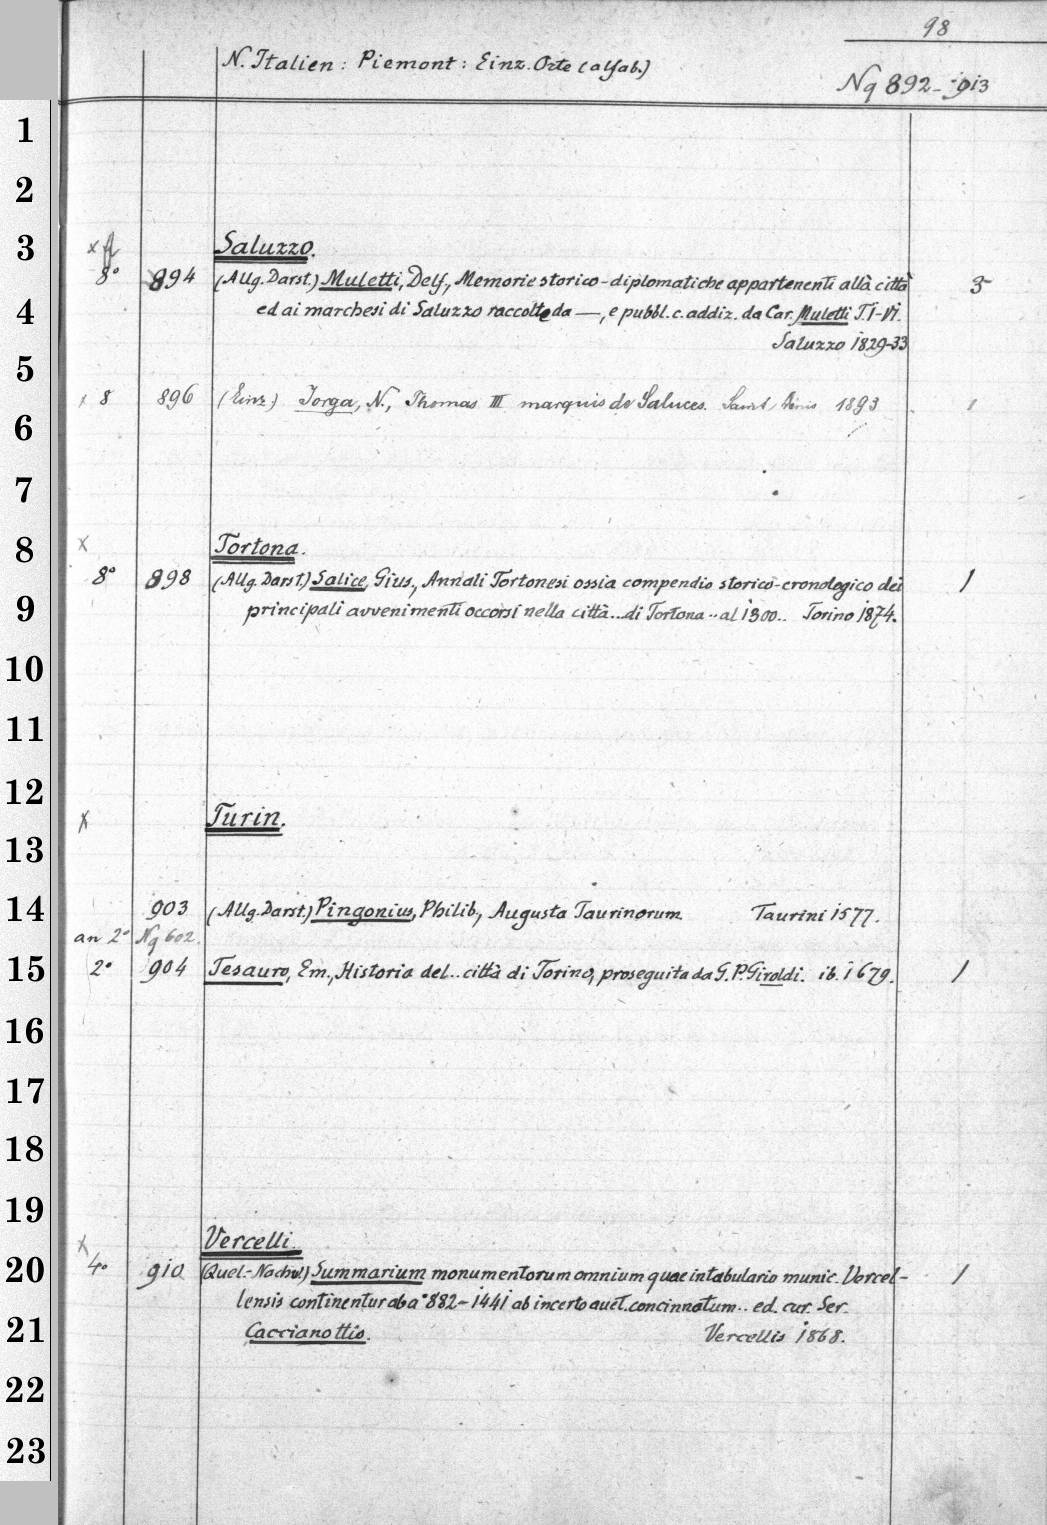 98
N. Italien: Piemont: Einz. Orte (alfab.)
Nq 892-913
1
2
3
x
Saluzzo.
8° 894 (Allg. Darst.) Muletti, Delf., Memorie storico-diplomatiche appartenenti alla città 5
4
ed ai marchesi di Saluzzo raccolte da —, e pubbl. c. addiz. da Car. Muletti T. I-VI.
Saluzzo 1829-33
5
x 8 896 (Einz.) Jorga, N., Thomas III marquis de Saluces. Saint Denis 1893 1
6
7
8
x
Tortona.
8° 898 (Allg. Darst.) Salice, Gius., Annali Tortonesi ossia compendio storico-cronologico dei 1
9
principali avvenimenti occorsi nella città...di Tortona .. al 1300.. Torino 1874.
10
11
12
x
Turin.
13
14
903 (Allg. Darst.) Pingonius, Philib., Augusta Taurinorum. Taurini 1577.
an 2° Nq 602.
15
2° 904 Tesauro, Em., Historia del.. città di Torino, proseguita da G. P. Giroldi. ib. 1679. 1
16
17
18
19
x
Vercelli.
20
4° 910 (Quel.-Nachw.) Summarium monumentorum omnium quae in tabulario munic. Vercel- 1
lensis continentur ab a° 882-1441 ab incerto auct. concinnatum.. ed. cur. Ser.
21
Caccianottio. Vercellis 1868.
22
23